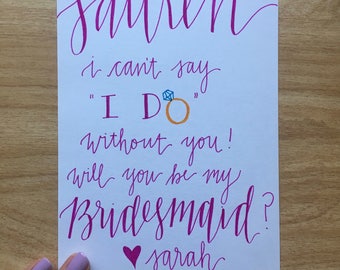 Lauren
i can't say
"I DO"
without you!
will you be my
Bridesmaid?
sarah